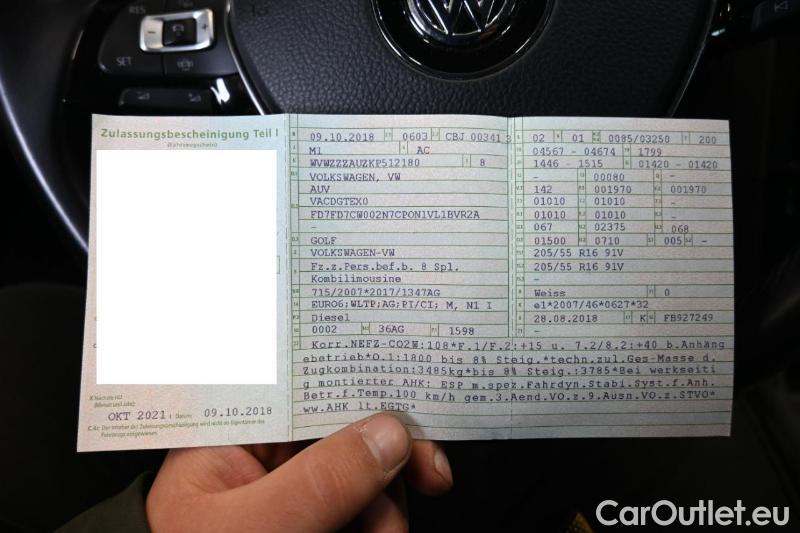 RES
SET
Zulassungsbescheinigung Teil I
(Fahrzeugschein)
Nächste HU
(Monat und Jahr)
OKT 2021 Datum: 09.10.2018
C.4c Der Inhaber der Zulassungsbescheinigung wird nicht als Eigentümer des
Fahrzeugs ausgewiesen.
09.10.2018 0603 CBJ 00341 3
M1 AC
WVWZZZAUZKP512180 8
VOLKSWAGEN, VW
AUV
VACDGTEX0
FD7FD7CW002N7CPON1VL1BVR2A
-
GOLF
VOLKSWAGEN-VW
Fz.z.Pers.bef.b. 8 Spl.
Kombilimousine
715/2007*2017/1347AG
EURO6;WLTP;AG;PI/CI; M, N1 I
Diesel
0002 36AG 1598
02 01 0085/03250 200
04567 - 04674 1799
1446 - 1515 01420 - 01420
- 00080 -
142 001970 001970
01010 01010 -
01010 01010 -
067 02375 068
01500 0710 005 -
205/55 R16 91V
205/55 R16 91V
-
Weiss 0
e1*2007/46*0627*32
28.08.2018 K FB927249
-
Korr.NEFZ-CO2W:108*F.1/F.2:+15 u. 7.2/8.2:+40 b.Anhäng
ebetrieb*O.1:1800 bis 8% Steig.*techn.zul.Ges-Masse d.
Zugkombination:3485kg*bis 8% Steig.:3785*Bei werkseiti
g montierter AHK: ESP m.spez.Fahrdyn.Stabi.Syst.f.Anh.
Betr.f.Temp.100 km/h gem.3.Aend.VO.z.9.Ausn.VO.z.STVO*
ww.AHK lt.EGTG*
CarOutlet.eu